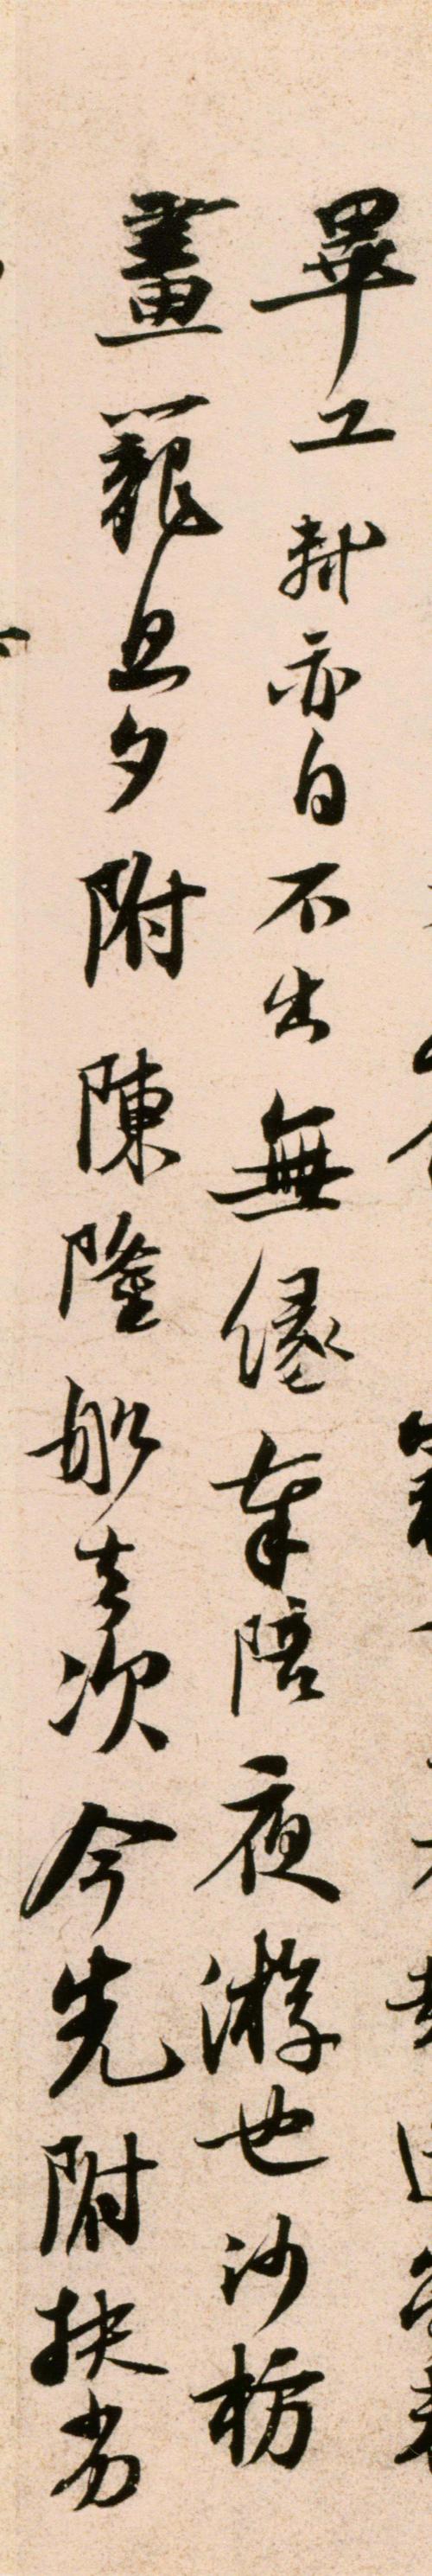 畢工軾亦自不出無緣奉陪夜游也沙枋
畫籠旦夕附陳隆船去次今先附扶劣